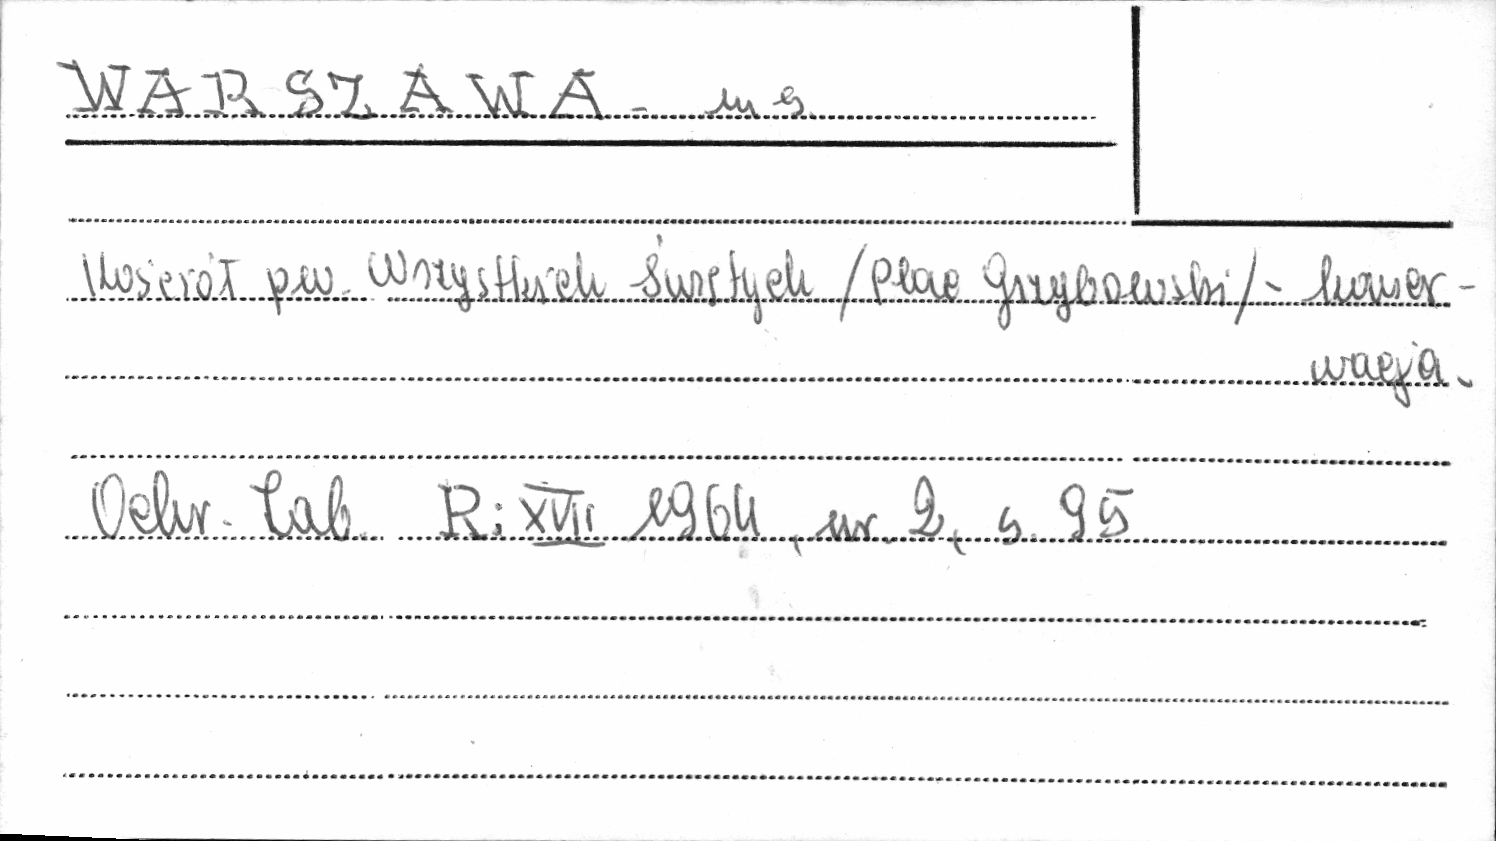 WARSZAWA - m s.
Kościół pw. Wszystkich Świętych /Plac Grzybowski/ - konser-
wacja.
Ochr. Zab. R: XVII 1964, nr. 2, s. 95